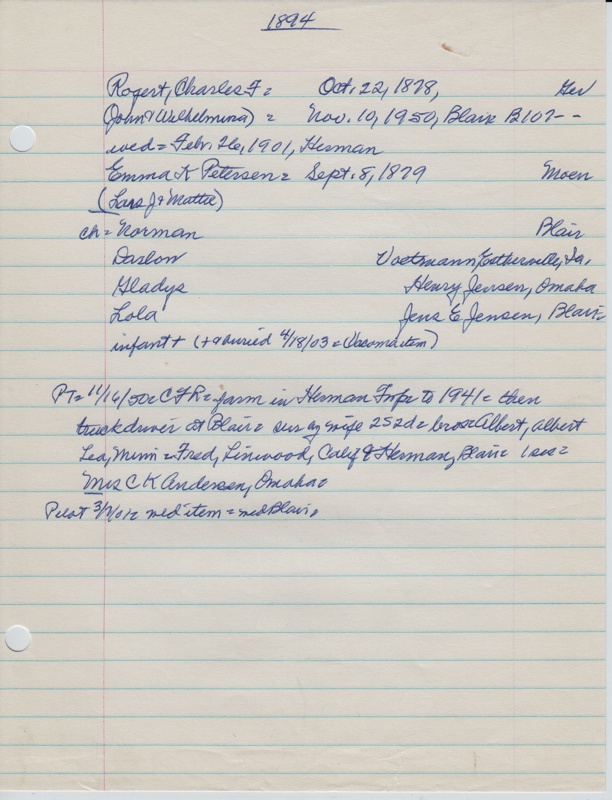 1894
Rogert, Charles F = Oct. 22, 1878, Ger
(John & Wilhelmina) = Nov. 10, 1950, Blair B107 - -
wed = Febr. 26, 1901, Herman
Emma K Petersen = Sept. 8, 1879 Moen
(Lars J & Mattie)
ch = Norman Blair
Daslow Voetmann, Estherville, Ia.
Gladys Henry Jensen, Omaha
Lola Jens E Jensen, Blair =
infant + (+ & buried 4/18/03 = (Vacoma item)
PT = 11/16/50 = C F R = farm in Herman Twp = to 1941 = then
truckdriver at Blair = sur by wife 2s 2d = bros = Albert, Albert
Lea, Minn = Fred, Linwood, Calif & Herman, Blair = 1 sis =
Mrs C K Andersen, Omaha.
Pilot 3/7/01 = wed item = wed Blair.